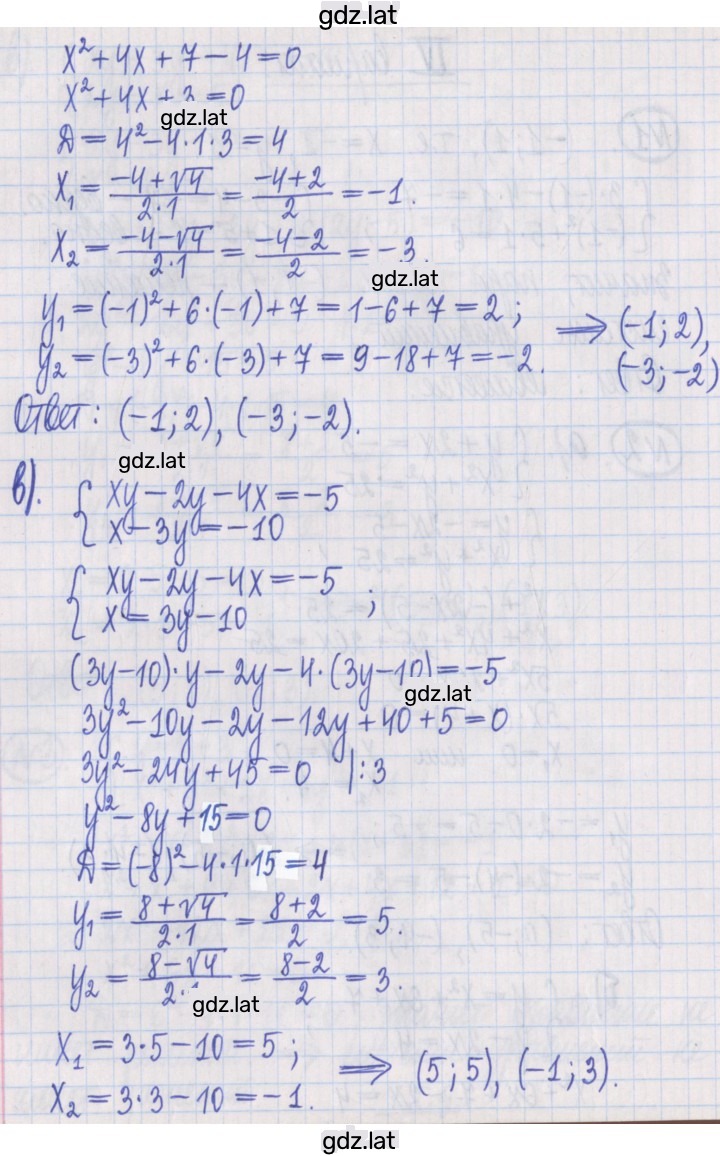 gdz.lat
x² + 4x + 7 − 4 = 0
x² + 4x + 3 = 0
gdz.lat
Д = 4² − 4·1·3 = 4
x₁ = (−4 + √4)/(2·1) = (−4 + 2)/2 = −1.
x₂ = (−4 − √4)/(2·1) = (−4 − 2)/2 = −3.
gdz.lat
y₁ = (−1)² + 6·(−1) + 7 = 1 − 6 + 7 = 2; ⟹ (−1; 2),
y₂ = (−3)² + 6·(−3) + 7 = 9 − 18 + 7 = −2. (−3; −2)
Ответ: (−1; 2), (−3; −2).
gdz.lat
в). { xy − 2y − 4x = −5
x − 3y = −10
{ xy − 2y − 4x = −5
x = 3y − 10 ;
(3y − 10)·y − 2y − 4·(3y − 10) = −5
gdz.lat
3y² − 10y − 2y − 12y + 40 + 5 = 0
3y² − 24y + 45 = 0 |:3
y² − 8y + 15 = 0
Д = (−8)² − 4·1·15 = 4
y₁ = (8 + √4)/(2·1) = (8 + 2)/2 = 5.
y₂ = (8 − √4)/(2·1) = (8 − 2)/2 = 3.
gdz.lat
x₁ = 3·5 − 10 = 5;
x₂ = 3·3 − 10 = −1. ⟹ (5; 5), (−1; 3).
gdz.lat